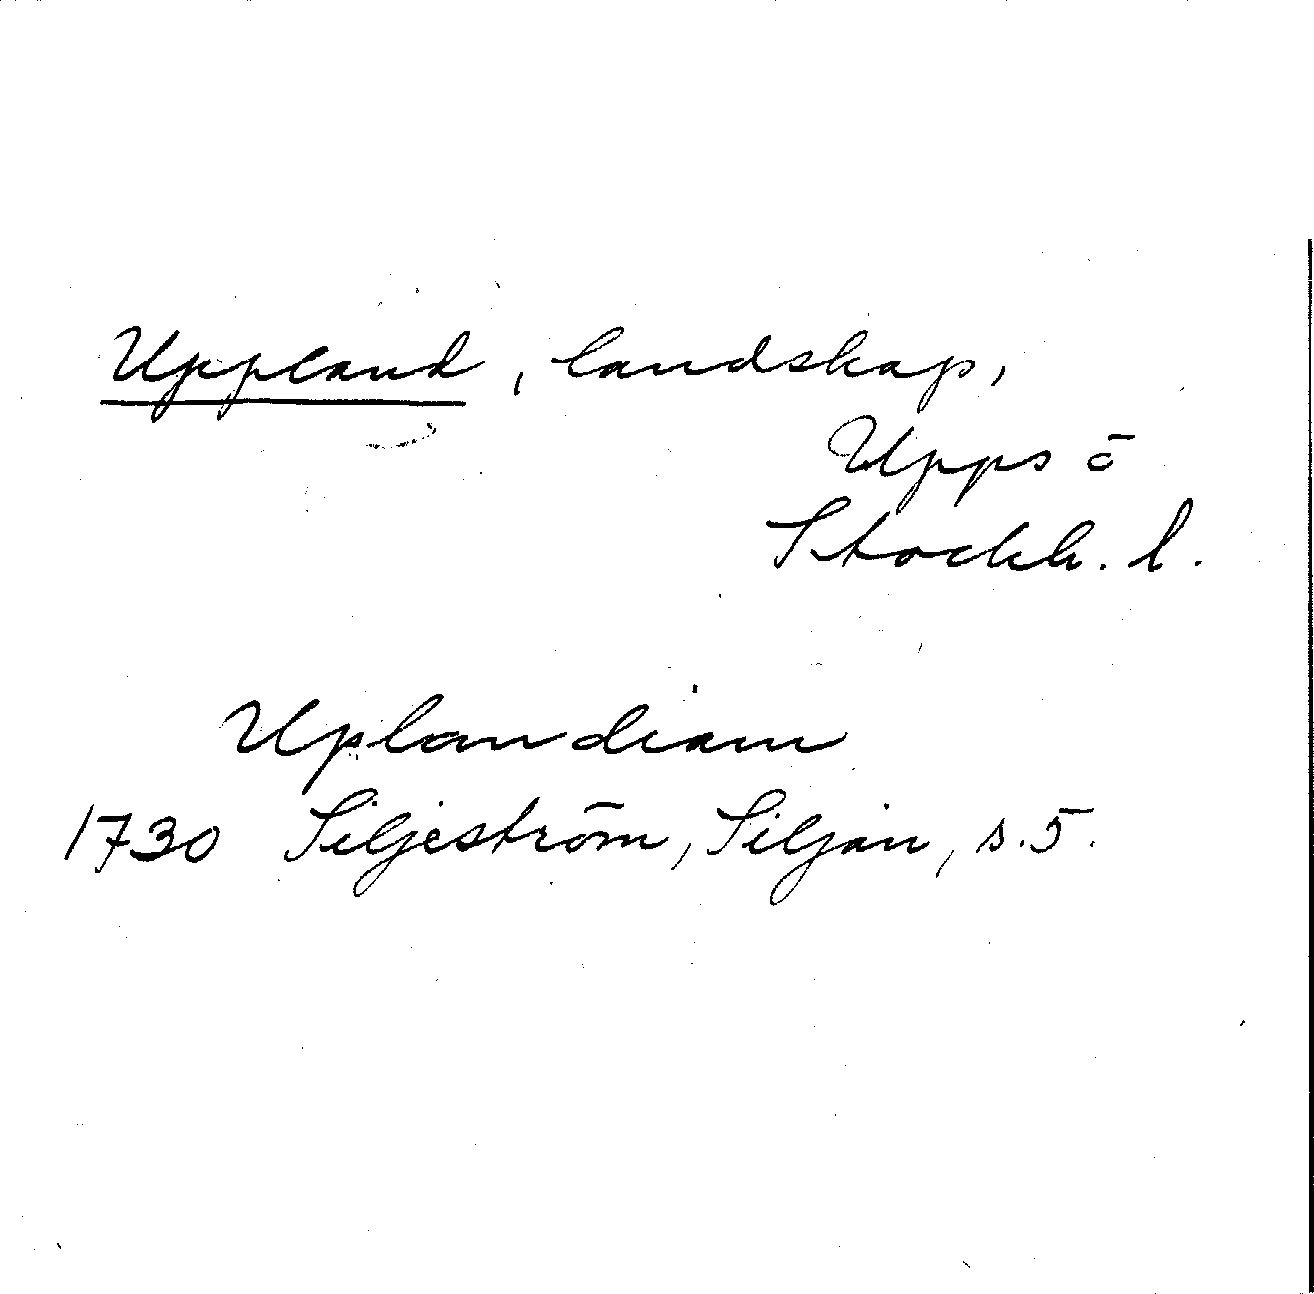 Uppland, landskap,
Upps o
Stockh. l.
Uplandiam
1730 Siljeström, Siljan, s. 5.